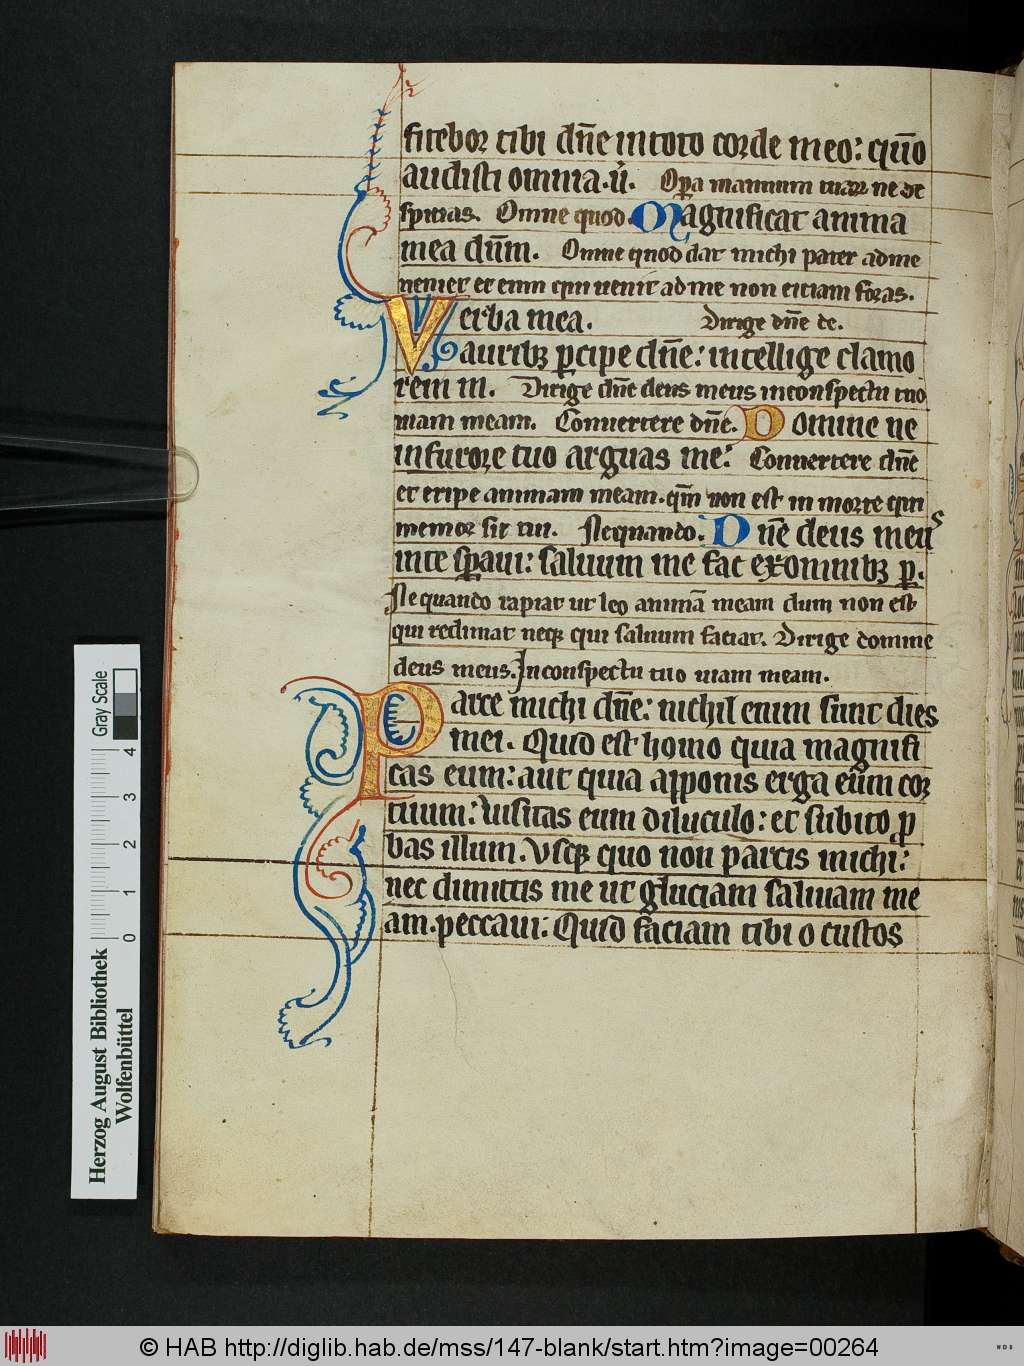 fitebor tibi dñe in toto corde meo: quo̅
audisti omnia. v̇. Op̲a manuum tuaꝝ ne de
spicias. Omne quod. Magnificat anima
mea dūm. Omne quod dat michi pater ad me
veniet et eum qui uenit ad me non eiciam foras.
Verba mea. Dirige dñe de.
auribꝫ ꝑcipe dñe: intellige clamo
rem m. Dirige dñe deus meus in conspectu tuo
uiam meam. Conuertere dñe. Domine ne
in furore tuo arguas me: Conuertere dñe
et eripe animam meam. qm̄ non est in morte qui
memor sit tui. Ne quando. Dñe deus meus
in te spaui: saluum me fac ex omnibꝫ ꝑ.
Ne quando rapiat ut leo animā meam dum non est
qui redimat neqꝫ qui saluum faciat. Dirige domine
deus meus. In conspectu tuo uiam meam.
Parce michi dñe: nichil enim sunt dies
mei. Quid est homo quia magnifi
cas eum: aut quia apponis erga eum cor
tuum: Uisitas eum diluculo: et subito ꝓ
bas illum. Usqꝫ quo non parcis michi:
nec dimittis me ut gluciam saliuam me
am. peccaui: Quid faciam tibi o custos
Herzog August Bibliothek
Wolfenbüttel
0 1 2 3 4
Gray Scale
© HAB http://diglib.hab.de/mss/147-blank/start.htm?image=00264